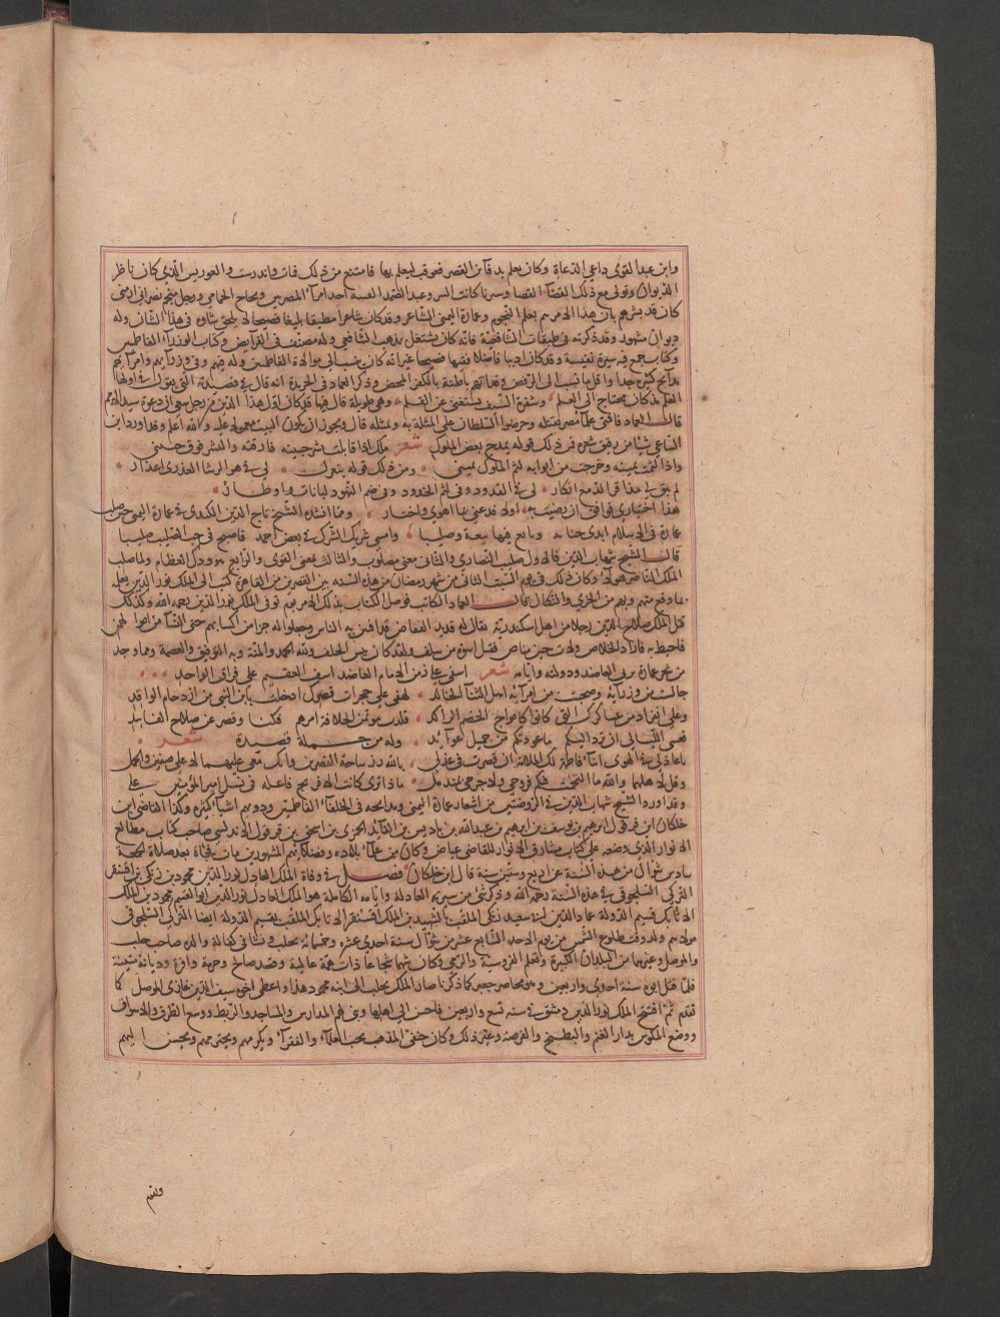 وابن عبد القوي داعي الدعاة وكان يعلم بدفائن القصر فعوقب ليعلم بها فامتنع من ذلك فمات واندرست والعوريس الذي كان ناظر
الديوان وتولى مع ذلك القضا
كان قد بشرهم بان هذا الامر يتم بعلم النجوم وعمارة اليمني الشاعر وقد كان شاعرا مطبقا بليغا فصيحا لا يلحق شاوه في هذا الشان وله
ديوان مشهور وقد ذكرته في طبقات الشافعية فانه كان يشتغل بمذهب الشافعي وله مصنف في الفرايض وكتاب الوزرآء الفاطميين
وكتاب جمع فيه سيرة نفيسة وقد كان اديبا فاضلا فقيها فصيحا غير انه كان ينسب الى موالاة الفاطميين وله فيهم وفي وزرآيهم وامرآيهم
مدايح كثيرة جدا واقل ما نسب الى الرفض وقد اتهم باطنه بالكفر المحض وذكر العماد في الخريدة انه قال في قصيدته التي يقول في اولها
العلم مذ كان محتاج الى العلم وشفرة السيف تستغني عن القلم وهي طويلة قال فيها قد كان اول هذا الدين من رجل سعى الى ان دعوه سيد الامم
قال العماد فافتى علمآ مصر بقتله وحرضوا السلطان على المثلة به وبمثله قال ويجوز ان يكون البيت معمولا عليه والله اعلم وقد اورد ابن
الساعي شيا من رقيق شعره فمن ذلك قوله يمدح بعض الملوك شعر ملك اذا قابلت بشر جبينه فارقته والبشر فوق جبيني
واذا لثمت يمينه وخرجت من ابوابه لثم الملوك يميني ومن ذلك قوله يتغزل لي في هوى الرشا العذري اعذار
لم يبق لي مذ اقر الدمع انكار لي في القدود وفي لثم الخدود وفي ضم النهود لبانات واوطار
هذا اختياري فوافق ان رضيت به اولا فدعني بما اهوى واختار ومما انشده الشيخ تاج الدين الكندي في عمارة اليمني حين صلب
عمارة في الاسلام ابدى خيانة وبايع فيها بيعة وصليبا وامسى شريك الشرك في بعض احمد فاصبح في حب الصليب صليبا
قال الشيخ شهاب الدين فالاول صليب النصارى والثاني بمعنى مصلوب والثالث بمعنى القوي والرابع ودك العظام ولما صلب
الملك الناصر هولاء وكان ذلك في يوم السبت الثاني من شهر رمضان من هذه السنه بين القصرين من القاهرة كتب الى الملك نور الدين يعلمه
بما وقع منهم وبهم من الخزي والنكال قال العماد الكاتب فوصل الكتاب بذلك الى يوم توفي الملك نور الدين رحمه الله وكذلك
قتل الملك صلاح الدين رجلا من اهل اسكندرية يقال له قديد القفاص قد افتتن به الناس وجعلوا له جزا من اكسابهم حتى النسآ من اموالهن
فاحيط به فاراد الخلاص ولات حين مناص فقتل اسوة من سلف ولقد كان بئس الخلف ولله الحمد والمنة وبه التوفيق والعصمة ومما وجد
من شعر عمارة يرثي العاضد ودولته وايامه شعر اسفي على زمن الامام العاضد اسف العقيم على فراق الواحد
جالست من وزرآيه وصحبت من امرآيه اهل الثنآ الخالد لهفي على حجرات قصرك اذ خلت يابن النبي من ازدحام الوافد
وعلى انفرادك من عساكرك التي كانوا كامواج الخضم الراكد قلدت موتمن الخلافة امرهم فكبا وقصر عن صلاح الفاسد
فعسى الليالي ان ترد اليكم ما عودتكم من جميل عوايد وله من جملة قصيدة شعر
يا عاذلي في هوى ابنآ فاطمة لك الملامة ان قصرت في عذلي بالله زر ساحة القصرين وابك معي عليهما لا على صفين والجمل
وقل لاهلهما والله ما التحمت فيكم قروحي ولا جرحي بمندمل ماذا ترى كانت الافرنج فاعلة في نسل امير المؤمنين علي
وقد اورد الشيخ شهاب الدين في الروضتين من اشعار عمارة اليمني ومدايحه في الخلفآء الفاطميين وذويهم اشيآ كثيرة وكذا القاضي ابن
خلكان ابن قرقول ابرهيم بن يوسف بن ابرهيم بن عبد الله بن باديس بن القايد الحمزي بن اسحق بن قرقول الاندلسي صاحب كتاب مطالع
الانوار الذي وضعه على كتاب مشارق الانوار للقاضي عياض وكان من علمآء بلاده وفضلايهم المشهورين مات فجاة بعد صلاة الجمعة
سادس شوال من هذه السنة عن اربع وستين سنة قال ابن خلكان فصل في وفاة الملك العادل نور الدين محمود بن زنكي بن اقسنقر
التركي السلجوقي في هذه السنة رحمه الله وذكر شئ من سيرته العادلة وايامه الكاملة هو الملك العادل نور الدين ابو القسم محمود بن الملك
الاتابك قسيم الدولة عماد الدين ابي سعيد زنكي الملقب بالشهيد بن الملك اقسنقر الاتابك الملقب بقسيم الدولة ايضا التركي السلجوقي
مولاهم ولد وقت طلوع الشمس من يوم الاحد السابع عشر من شوال سنة احدى عشره وخمسمائة بحلب ونشا في كفالة والده صاحب حلب
والموصل وغيرهما من البلدان الكثيرة وتعلم الفروسية والرمي وكان شهما شجاعا ذا همة عالية وقصد صالح وحرمة وافرة وديانة متينة
فلما قتل ابوه سنة احدى واربعين وهو محاصر جعبر كما ذكرنا صار الملك بحلب الى ابنه محمود هذا واعطى اخوه سيف الدين غازي الموصل كما
تقدم ثم افتتح الملك نور الدين دمشق في سنه تسع واربعين فاحسن الى اهلها وبنى لهم المدارس والمساجد والربط ووسع الطرق والاسواق
ووضع المكوس بدار الغنم والبطيخ والعرصة وغير ذلك وكان حنفي المذهب يحب العلمآء والفقرآء ويكرمهم ويحترمهم ويحسن اليهم